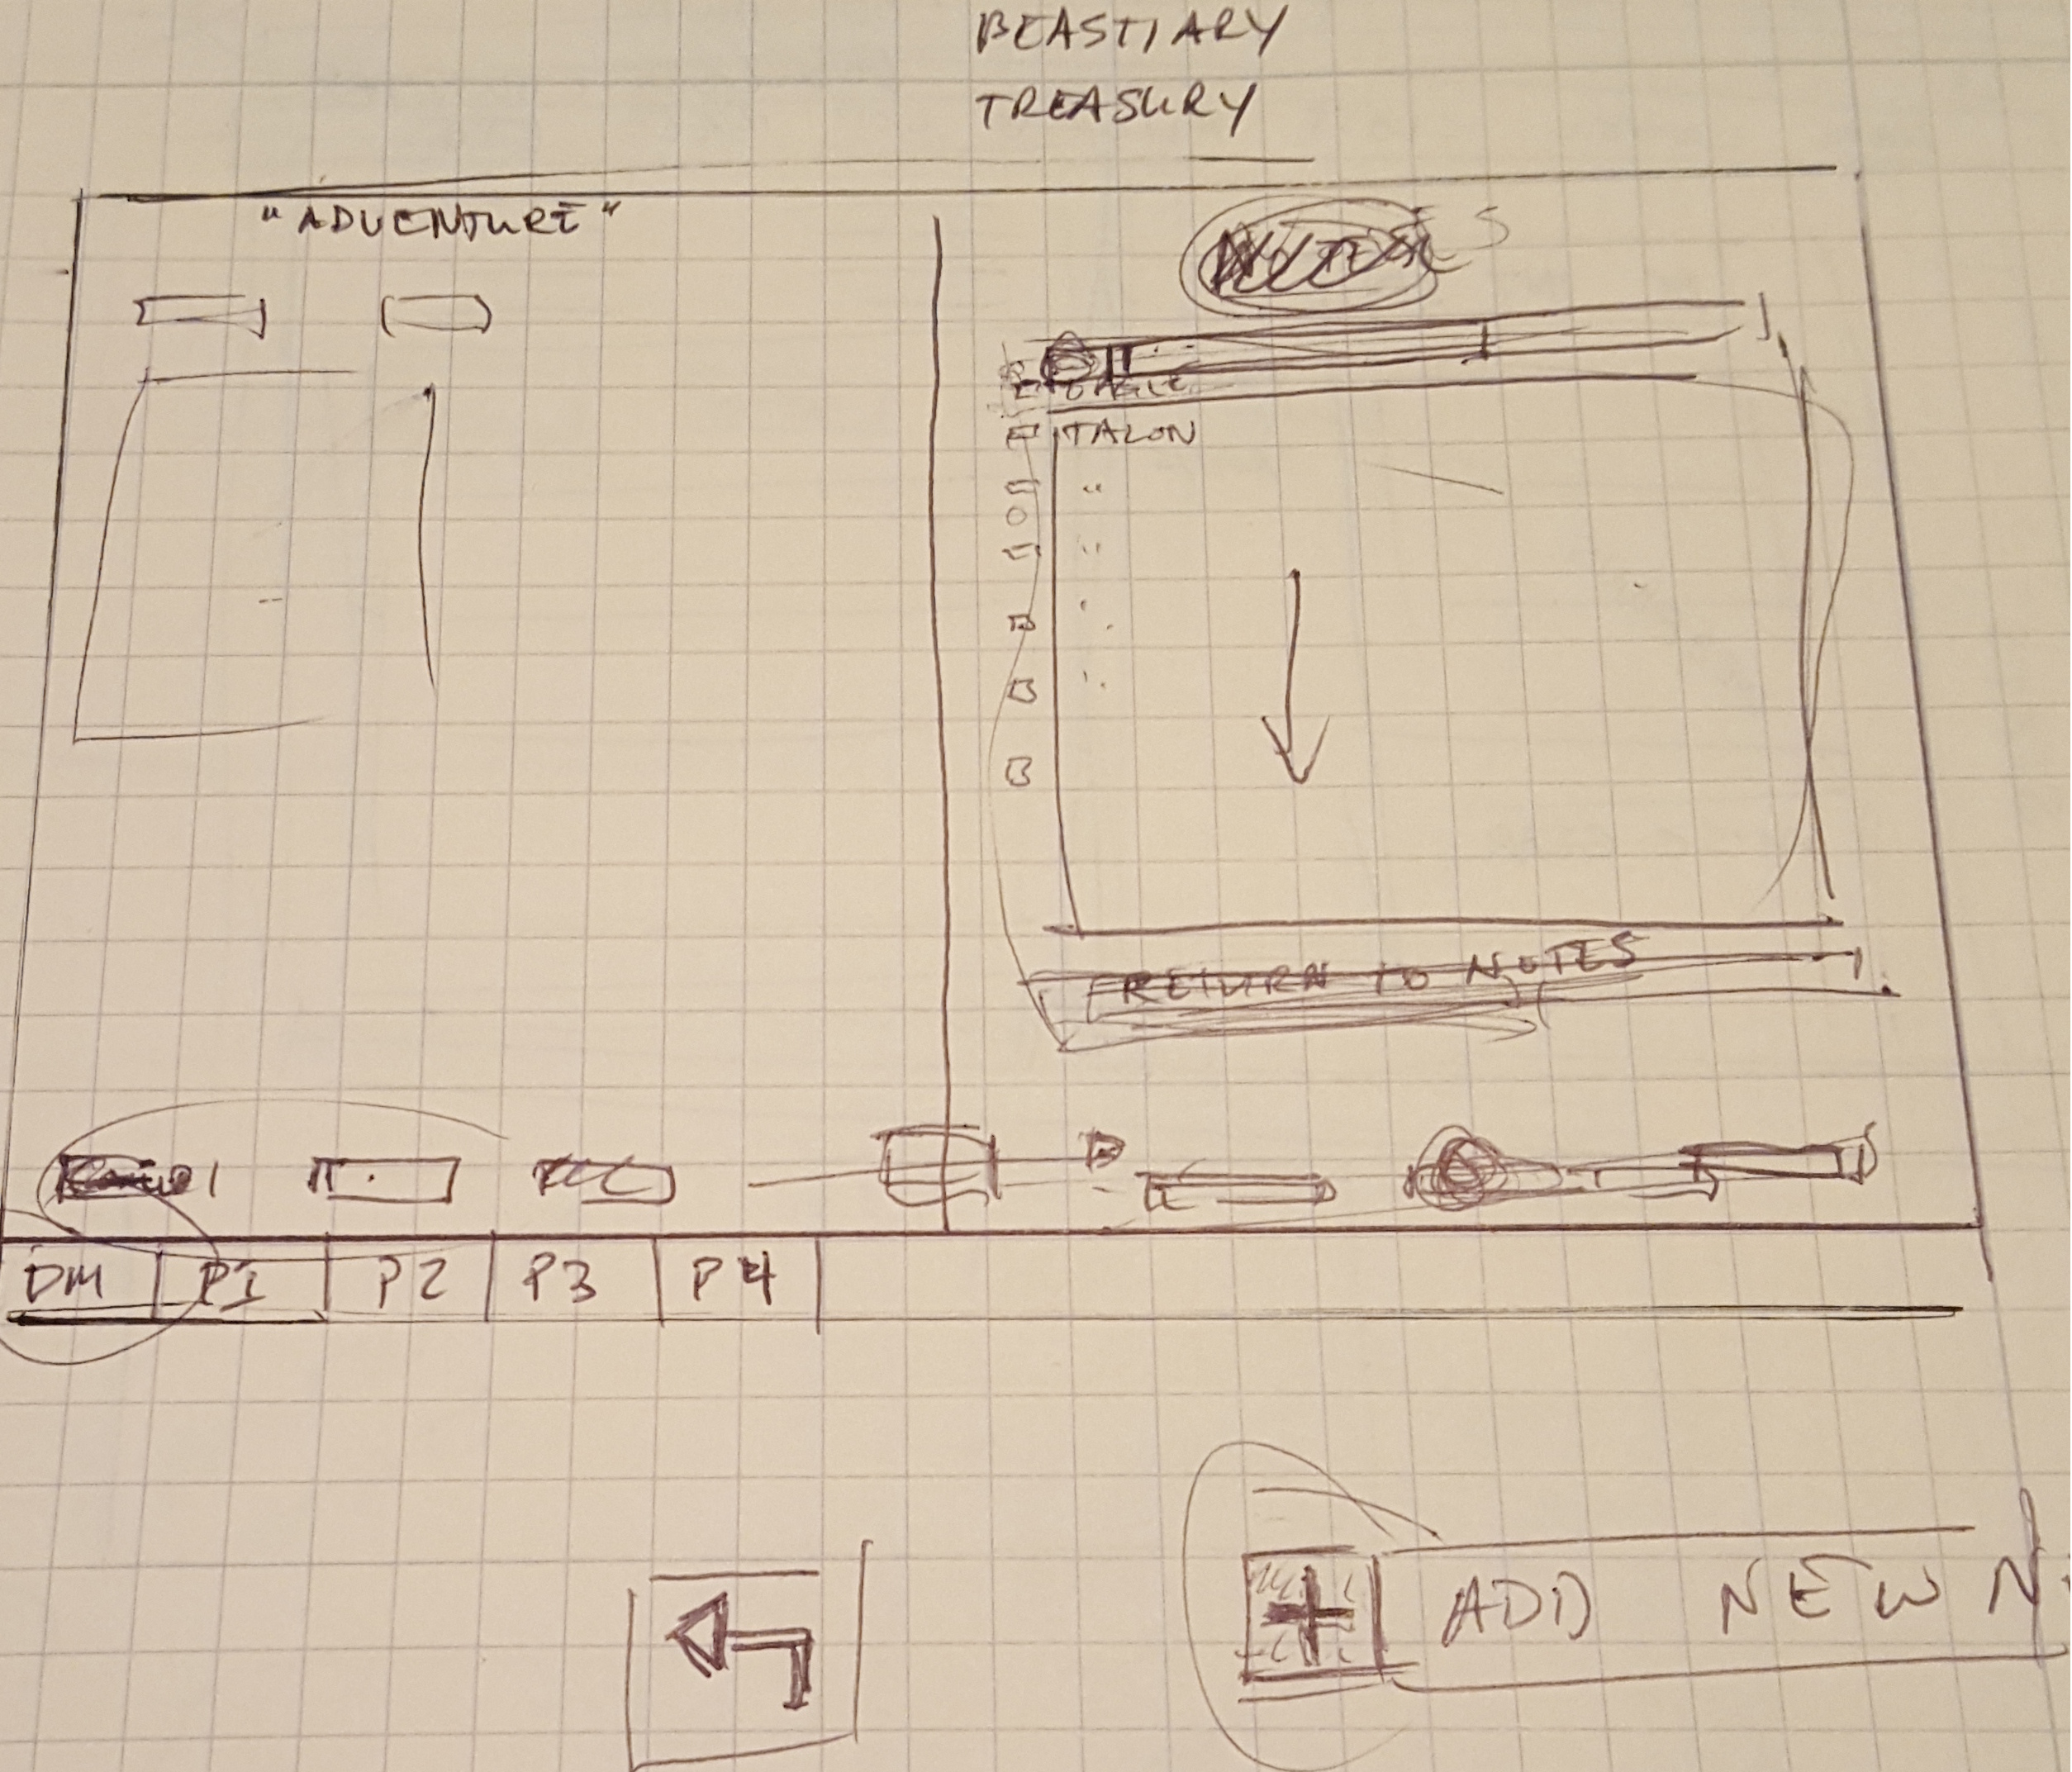 BEASTIARY
TREASURY
"ADVENTURE"
NOTES
TALON
RETURN TO NOTES
DM P1 P2 P3 P4
+ ADD NEW N